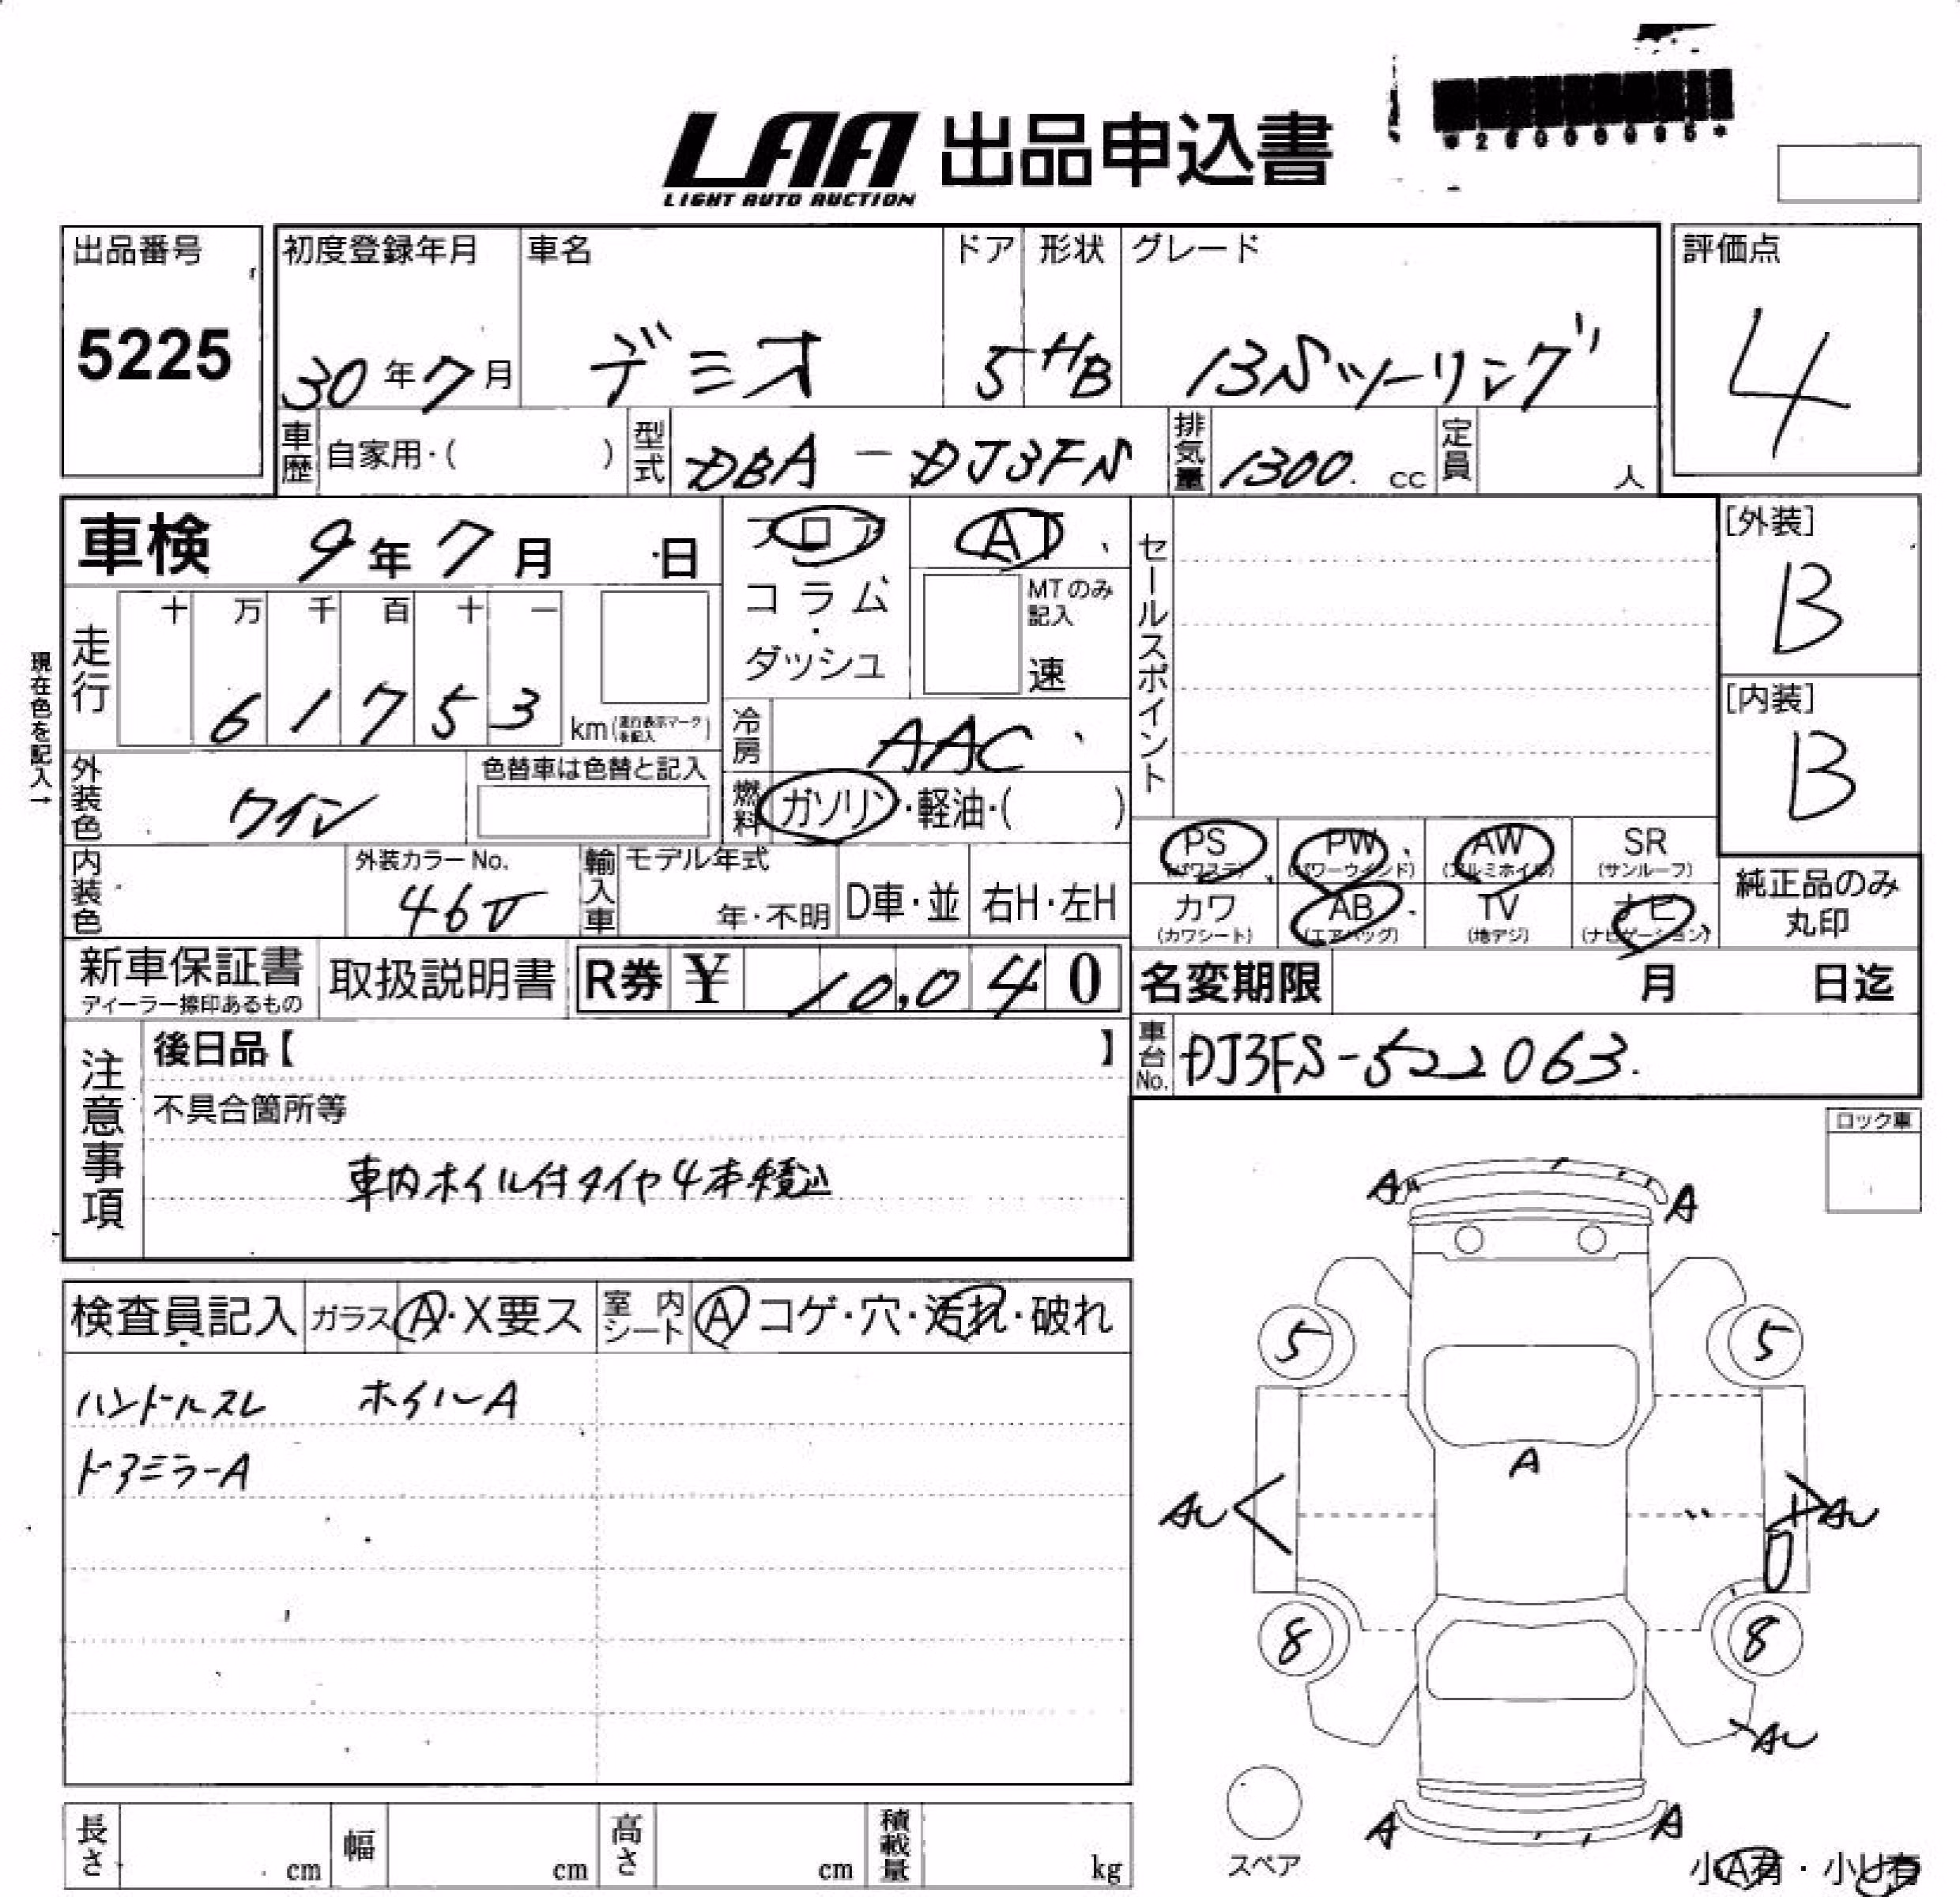 LAA 出品申込書
LIGHT AUTO AUCTION
出品番号 初度登録年月 車名 ドア 形状 グレード 評価点
5225 30年7月 デミオ 5 HB 13Sツーリング 4
車歴 自家用・( ) 型式 DBA-DJ3FS 排気量 1300. cc 定員 人
車検 9年7月 日 フロア AT セールスポイント [外装]
コラム MTのみ記入 B
・
ダッシュ 速
走行 十 万 千 百 十 一
6 1 7 5 3 km(走行表示マークを記入)
現在色を記入→
[内装]
B
冷房 AAC
外装色 ワイン 色替車は色替と記入 燃料 ガソリン・軽油・( )
PS PW AW SR
(パワステ) (パワーウィンド) (アルミホイル) (サンルーフ)
カワ AB TV ナビ
(カワシート) (エアバッグ) (地デジ) (ナビゲーション)
純正品のみ
丸印
内装色 外装カラーNo. 46V 輸入車 モデル年式 年・不明 D車・並 右H・左H
新車保証書 取扱説明書 R券 ¥ 10,040 名変期限 月 日迄
ディーラー捺印あるもの
車台No. DJ3FS-522063.
注意事項 後日品【 】
不具合箇所等
車内ホイル付タイヤ4本積込
ロック車
検査員記入 ガラス A・X要ス 室内シート A コゲ・穴・汚れ・破れ
ハンドルスレ ホイルA
ドアミラーA
A A
5 5
A
AU AU
8 8
AU
A A
スペア
小A有・小U有
長さ cm 幅 cm 高さ cm 積載量 kg